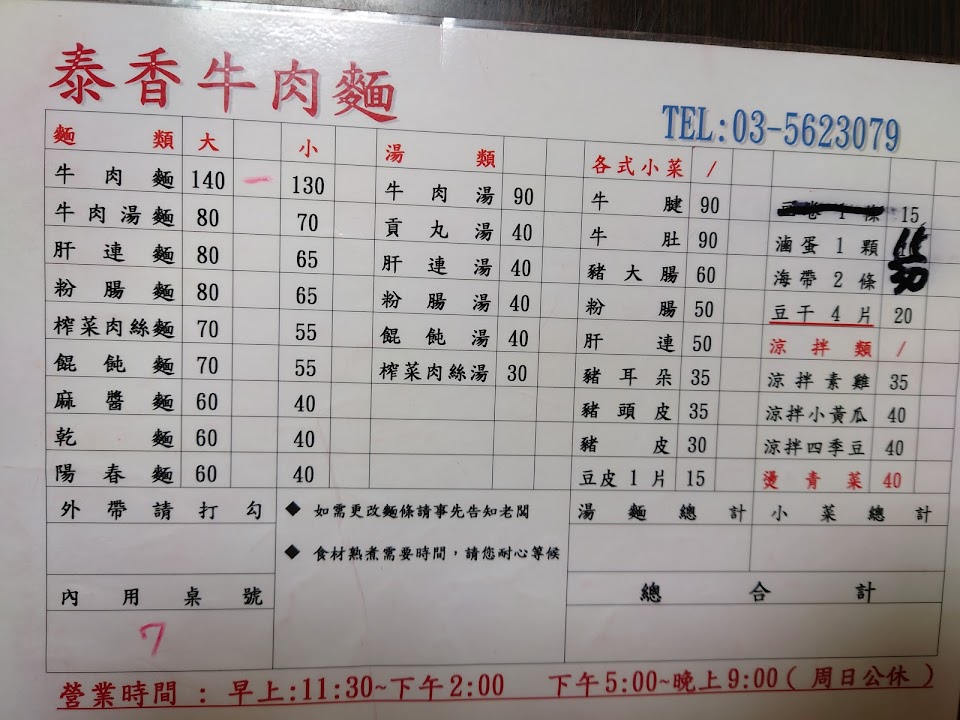 泰香牛肉麵
TEL:03-5623079
麵類 大 小
牛肉麵 140 130
牛肉湯麵 80 70
肝連麵 80 65
粉腸麵 80 65
榨菜肉絲麵 70 55
餛飩麵 70 55
麻醬麵 60 40
乾麵 60 40
陽春麵 60 40
湯類
牛肉湯 90
貢丸湯 40
肝連湯 40
粉腸湯 40
餛飩湯 40
榨菜肉絲湯 30
各式小菜 /
牛腱 90
牛肚 90
豬大腸 60
粉腸 50
肝連 50
豬耳朵 35
豬頭皮 35
豬皮 30
豆皮1片 15
15
滷蛋1顆 15
海帶2條 30
豆干4片 20
涼拌類 /
涼拌素雞 35
涼拌小黃瓜 40
涼拌四季豆 40
燙青菜 40
外帶請打勾
◆ 如需更改麵條請事先告知老闆
◆ 食材熟煮需要時間，請您耐心等候
內用桌號
7
湯麵總計 小菜總計
總合計
營業時間 : 早上:11:30~下午2:00 下午5:00~晚上9:00( 周日公休 )